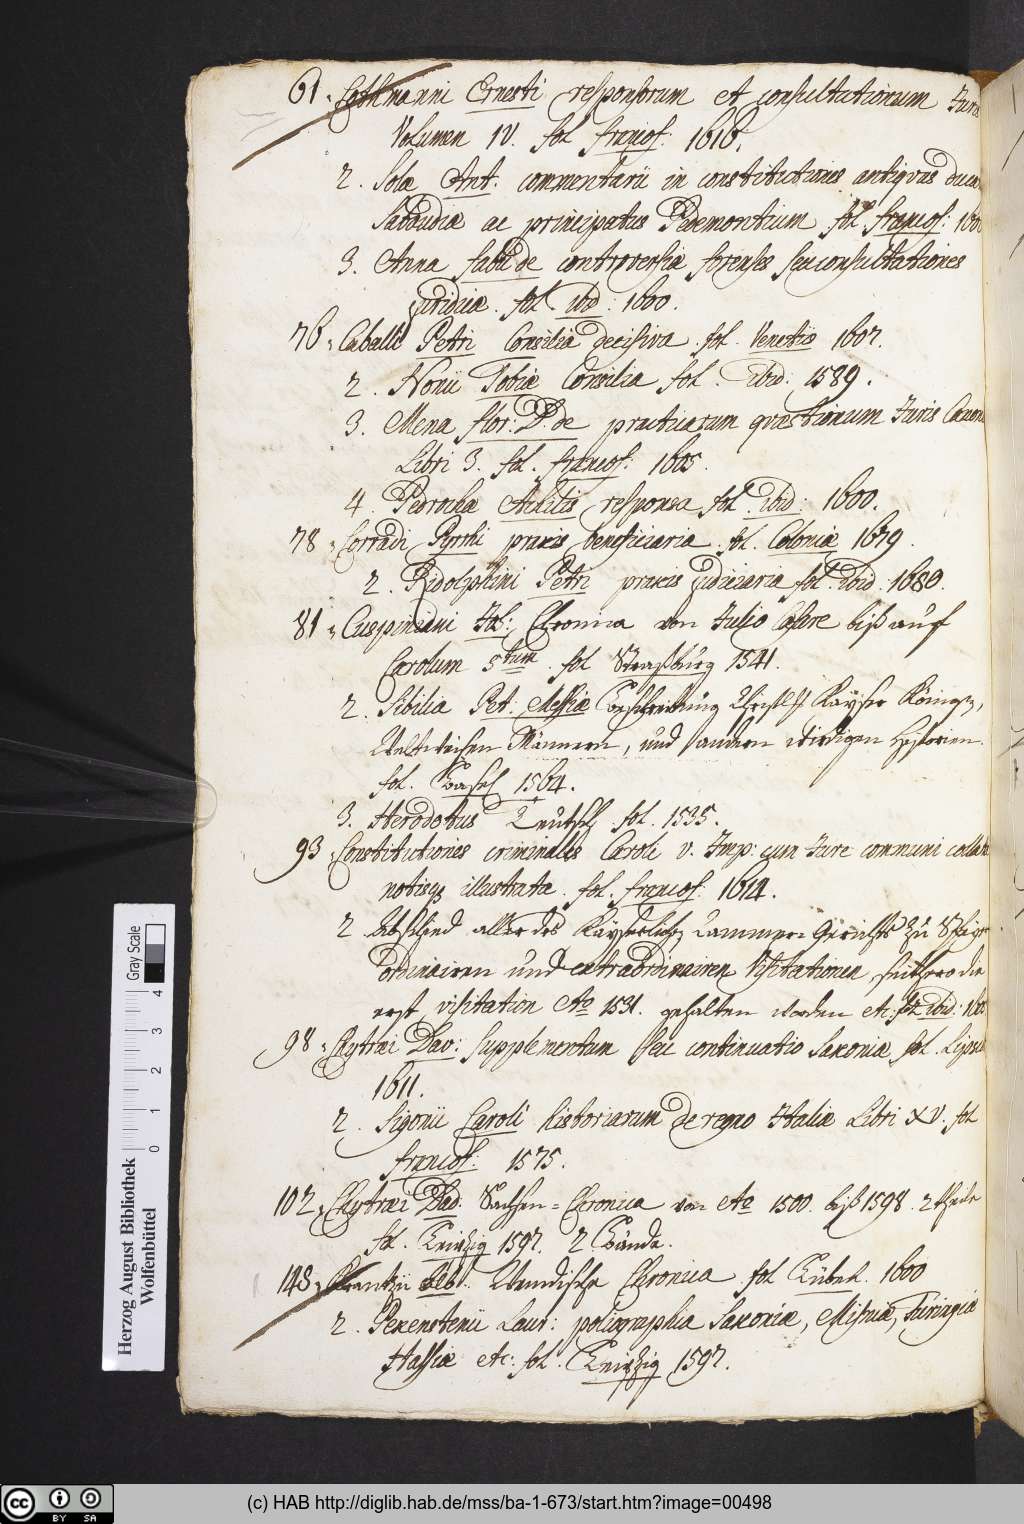 61. Cothmanni Ernesti responsorum et consultationum Juris
Volumen IV. fol francof: 1616.
2. Solæ Ant: commentarii in constitutiones antiqvas ducat
Sabaudiæ ac principatus Pedemontium fol. francof: 1600
3. Anna fabii de controversiæ forenses seu consultationes
juridicæ. fol. ibid: 1600.
76. Caballi Petri Consilia decisiva. fol. Venetiis 1607.
2. Nonii Tobiæ Consilia fol. ibid: 1589.
3. Mena flor: D. de practicarum qvæstionum Juris Canon
Libri 3. fol. francof: 1605.
4. Pedrocha Achilis responsa fol. ibid: 1600.
78. Corradi Pyrrhi praxis beneficiaria. fol. Coloniæ 1679.
2. Ridolphini Petri praxis judiciaria fol. ibid. 1680.
81. Cuspiniani Joh: Chronica von Julio Cæsare biß auf
Carolum 5tum. fol Straßburg 1541.
2. Sibilia Pet: Messiæ Beschreibung Christl Kayser Könige,
Weltweisen Männern, und andern wirdigen Historien.
fol. Basel 1564.
3. Herodotus Teutsch. fol. 1535.
93. Constitutiones criminales Caroli v. Imp: cum Jure communi collatæ
notisq illustratæ. fol. francof: 1614.
2 Abschied aller des Kayserlichen Cammer Gerichts zu Speyer
ordinairen und extraordinairen Visitationen, seithero die
erst visitation Ao 1531. gehalten worden etc: fol. ibid: 160
98. Chytræi Dav: supplementum seu continuatio Saxoniæ fol. Lipsiæ
1611.
2. Sigonii Caroli historiarum de regno Italiæ Libri XV. fol
francof: 1575.
102. Chytræi Dav: Sachsen=Chronica von Ao 1500. biß 1598. 2 theile
fol. Leipzig 1597. 2 Bände.
148. Crantzii Alb: Wendische Chronica. fol Lübek. 1600
2. Pekensteinii Laur: poliographia Saxoniæ, Misniæ, Turingiæ
Hassiæ etc: fol. Leipzig 1597.
Gray Scale
0 1 2 3 4
Herzog August Bibliothek
Wolfenbüttel
cc BY SA
(c) HAB http://diglib.hab.de/mss/ba-1-673/start.htm?image=00498